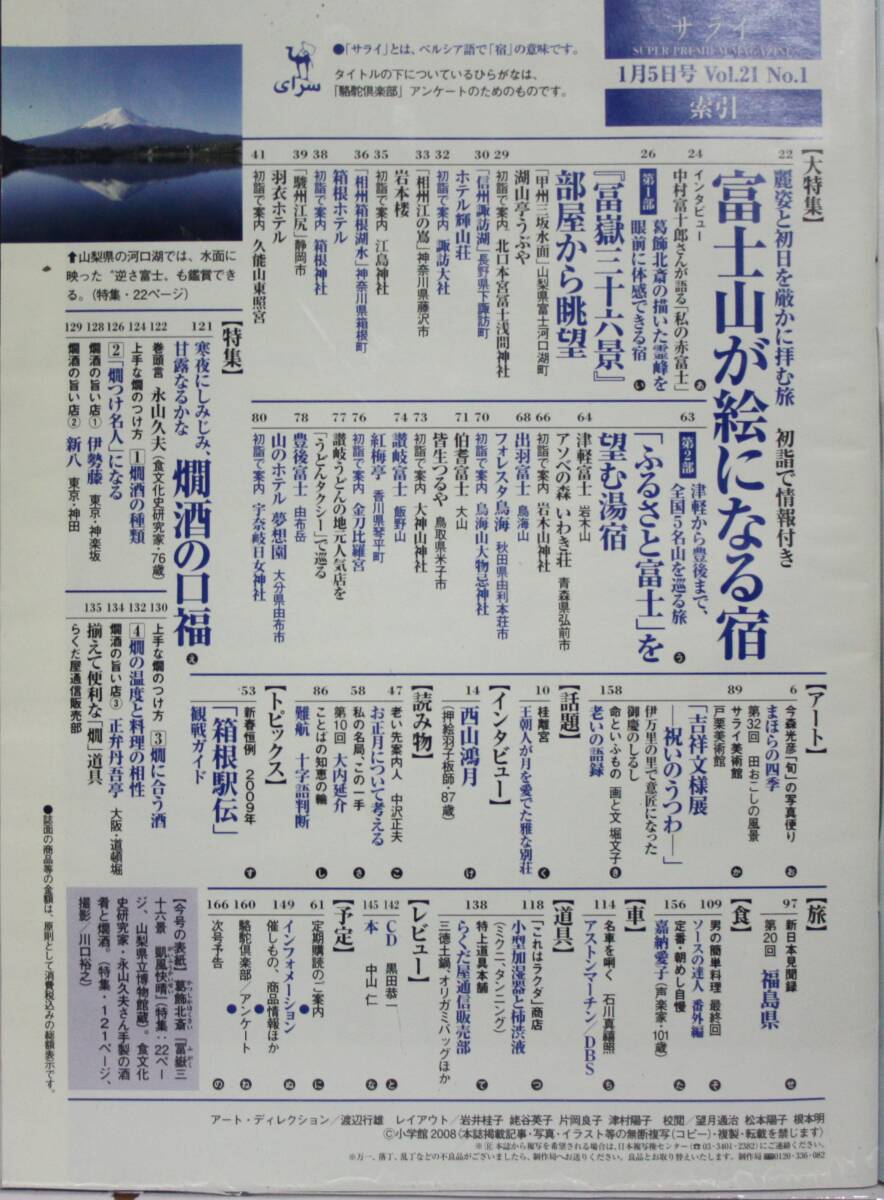 サライ
SUPER PREMIUM MAGAZINE
1月5日号 Vol.21 No.1
索引
●「サライ」とは、ペルシア語で「宿」の意味です。
タイトルの下についているひらがなは、
「駱駝倶楽部」アンケートのためのものです。
سرای
⬆山梨県の河口湖では、水面に
映った〝逆さ富士〟も鑑賞でき
る。(特集・22ページ)
【大特集】
22 麗姿と初日を厳かに拝む旅 初詣で情報付き
富士山が絵になる宿
24 インタビュー
中村富十郎さんが語る「私の赤富士」 あ
26 第1部 葛飾北斎の描いた霊峰を
眼前に体感できる宿 い
『富嶽三十六景』
部屋から眺望
「甲州三坂水面」山梨県富士河口湖町
湖山亭うぶや
29 初詣で案内 北口本宮冨士浅間神社
30 「信州諏訪湖」長野県下諏訪町
ホテル輝山荘
32 初詣で案内 諏訪大社
33 「相州江の嶌」神奈川県藤沢市
岩本楼
35 初詣で案内 江島神社
36 「相州箱根湖水」神奈川県箱根町
箱根ホテル
38 初詣で案内 箱根神社
39 「駿州江尻」静岡市
羽衣ホテル
41 初詣で案内 久能山東照宮
63 第2部 津軽から豊後まで、
全国5名山を巡る旅 う
「ふるさと富士」を
望む湯宿
64 津軽富士 岩木山
アソベの森 いわき荘 青森県弘前市
66 初詣で案内 岩木山神社
68 出羽富士 鳥海山
フォレスタ鳥海 秋田県由利本荘市
70 初詣で案内 鳥海山大物忌神社
71 伯耆富士 大山
皆生つるや 鳥取県米子市
73 初詣で案内 大神山神社
74 讃岐富士 飯野山
紅梅亭 香川県琴平町
76 初詣で案内 金刀比羅宮
77 讃岐うどんの地元人気店を
「うどんタクシー」で巡る
78 豊後富士 由布岳
山のホテル 夢想園 大分県由布市
80 初詣で案内 宇奈岐日女神社
【特集】
121 寒夜にしみじみ、
甘露なるかな
燗酒の口福 え
122 巻頭言 永山久夫(食文化史研究家・76歳)
124 上手な燗のつけ方 1 燗酒の種類
126 2 「燗つけ名人」になる
128 燗酒の旨い店① 伊勢藤 東京・神楽坂
129 燗酒の旨い店② 新八 東京・神田
130 上手な燗のつけ方 3 燗に合う酒
132 4 燗の温度と料理の相性
134 燗酒の旨い店③ 正弁丹吾亭 大阪・道頓堀
135 揃えて便利な「燗」道具
らくだ屋通信販売部
【アート】
6 今森光彦「旬」の写真便り
まほらの四季
第32回 田おこしの風景 お
89 サライ美術館
戸栗美術館
「吉祥文様展
―祝いのうつわ―」 か
伊万里の里で意匠になった
御慶のしるし
158 命といふもの 画と文 堀文子
老いの語録 き
【話題】
10 桂離宮
王朝人が月を愛でた雅な別荘 く
【インタビュー】
14 西山鴻月
(押絵羽子板師・87歳) け
【読み物】
47 老い先案内人 中沢正夫
お正月について考える こ
58 私の名局、この一手
第10回 大内延介 さ
86 ことばの知恵の輪
難航 十字語判断 し
【トピックス】
53 新春恒例 2009年
「箱根駅伝」
観戦ガイド す
【旅】
97 新日本見聞録
第20回 福島県 せ
【食】
109 男の簡単料理 最終回
ソースの達人 番外編 そ
156 定番・朝めし自慢
嘉納愛子(声楽家・101歳) た
【車】
114 名車を聞く 石川真禧照
アストンマーチン/DBS ち
【道具】
118 「これはラクダ」商店
小型加湿器と柿渋液 つ
(ミクニ、タンニング)
138 特上道具本舗
らくだ屋通信販売部 て
三徳土鍋、オリガミバッグほか
【レビュー】
142 CD 黒田恭一 と
145 本 中山 仁 な
【予定】
61 定期購読のご案内 に
149 インフォメーション ぬ
催しもの、商品情報ほか
160 駱駝倶楽部/アンケート ね
166 次号予告 の
【今号の表紙】葛飾北斎『冨嶽三
十六景 凱風快晴』(特集:22ペー
ジ、山梨県立博物館蔵)。食文化
史研究家・永山久夫さん手製の酒
肴と燗酒。(特集・121ページ、
撮影/川口裕之)
●誌面の商品等の金額は、原則として消費税込みの総額表示です。
アート・ディレクション/渡辺行雄 レイアウト/岩井桂子 姥谷英子 片岡良子 津村陽子 校閲/望月通治 松本陽子 根本明
©小学館2008〈本誌掲載記事・写真・イラスト等の無断複写(コピー)・複製・転載を禁じます〉
※Ⓡ本誌から複写を希望される場合は、日本複写権センター(☎03-3401-2382)にご連絡ください。
※万一、落丁、乱丁などの不良品がございましたら、制作局へお送りください。良品とお取り替えいたします。制作局 0120-336-082